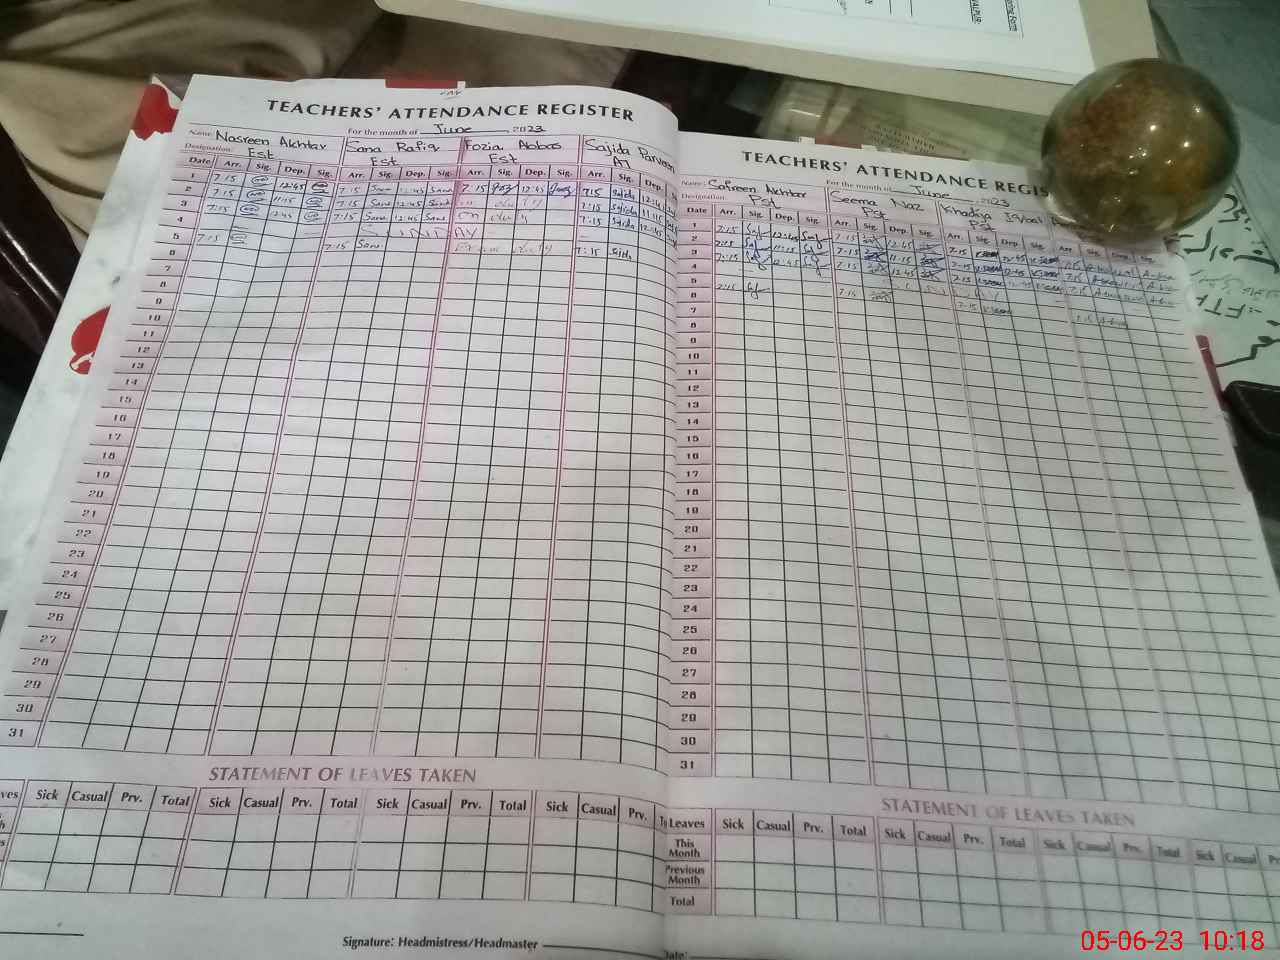 TEACHERS' ATTENDANCE REGISTER
Name: Nasreen Akhtar Sana Rafiq Fozia Abbas Sajida Parveen
For the month of June, 2023
Designation: Est Est Est AT
Date Arr. Sig. Dep. Sig. Arr. Sig. Dep. Sig. Arr. Sig. Dep. Sig. Arr. Sig. Dep.
1 7:15 12:45 7:15 Sana 12:45 Sana 7:15 12:45 7:15 Sajida
2 7:15 11:15 7:15 Sana Sana on duty 7:15 Sajida 11:15
3 7:15 12:45 7:15 Sana 12:45 Sana on duty 7:15 Sajida 12:45
4 SUNDAY
5 7:15 7:15 Sana Exam duty 7:15 Sajida
6
7
8
9
10
11
12
13
14
15
16
17
18
19
20
21
22
23
24
25
26
27
28
29
30
31
STATEMENT OF LEAVES TAKEN
Sick Casual Prv. Total Sick Casual Prv. Total Sick Casual Prv. Total Sick Casual Prv.
Signature: Headmistress/Headmaster
TEACHERS' ATTENDANCE REGIS
Name: Safreen Akhtar Seema Naz Khadija Iqbal
For the month of June, 2023
Designation: Pst Pst Pst
Date Arr. Sig. Dep. Sig. Arr. Sig. Dep. Sig. Arr. Sig. Dep. Sig. Arr. Sig. Dep. Sig.
1 7:15 12:45 7:15 12:45 7:15 12:45
2 7:15 11:15 7:15 11:15 7:15
3 7:15 12:45 7:15 12:45 7:15 12:45 7:15
4
5 7:15 7:15 7:15 7:15
6
7
8
9
10
11
12
13
14
15
16
17
18
19
20
21
22
23
24
25
26
27
28
29
30
31
STATEMENT OF LEAVES TAKEN
Leaves Sick Casual Prv. Total Sick Casual Prv. Total Sick Casual Prv. Total Sick Casual
This Month
Previous Month
Total
Date:
05-06-23 10:18